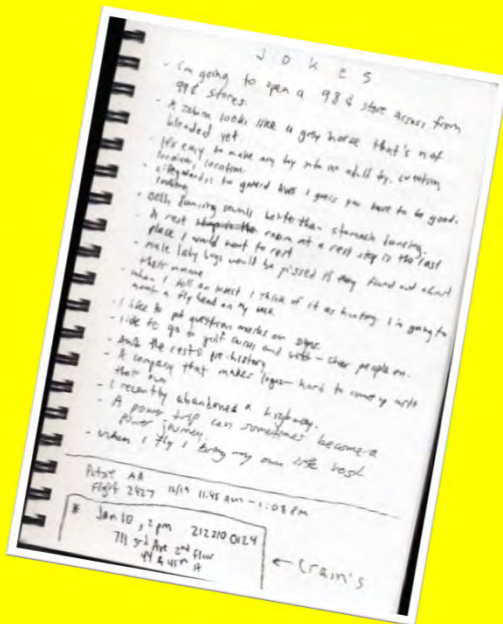 JOKES
- i'm going to open a 98¢ store across from
99¢ stores.
- A zebra looks like a grey horse that's not
blended yet
- It's easy to make any toy into an adult toy.
location, location.
- to guard lives I guess you have to be good-
looking
- Belly dancing sounds better than stomach dancing.
- A rest room at a rest stop is the last
place I would want to rest
- male lady bugs would be pissed if they found out about
their name
- when I kill an insect I think of it as hunting. I'm going to
mount a fly head on my
- I like to put question marks on
- I like to go to golf and cheer people on.
- the rest's pre-history
- A company that makes logos - hard to come up with
their own
- I recently abandoned a highway.
- A power trip can sometimes become a
power journey.
- when I fly I bring my own
AA
Flight 2427 12/19 11:45 AM - 1:08 PM
* Jan 10, 2 pm 212 210 0124
711 3rd Ave 2nd Floor
44 & 45th St
← Crain's